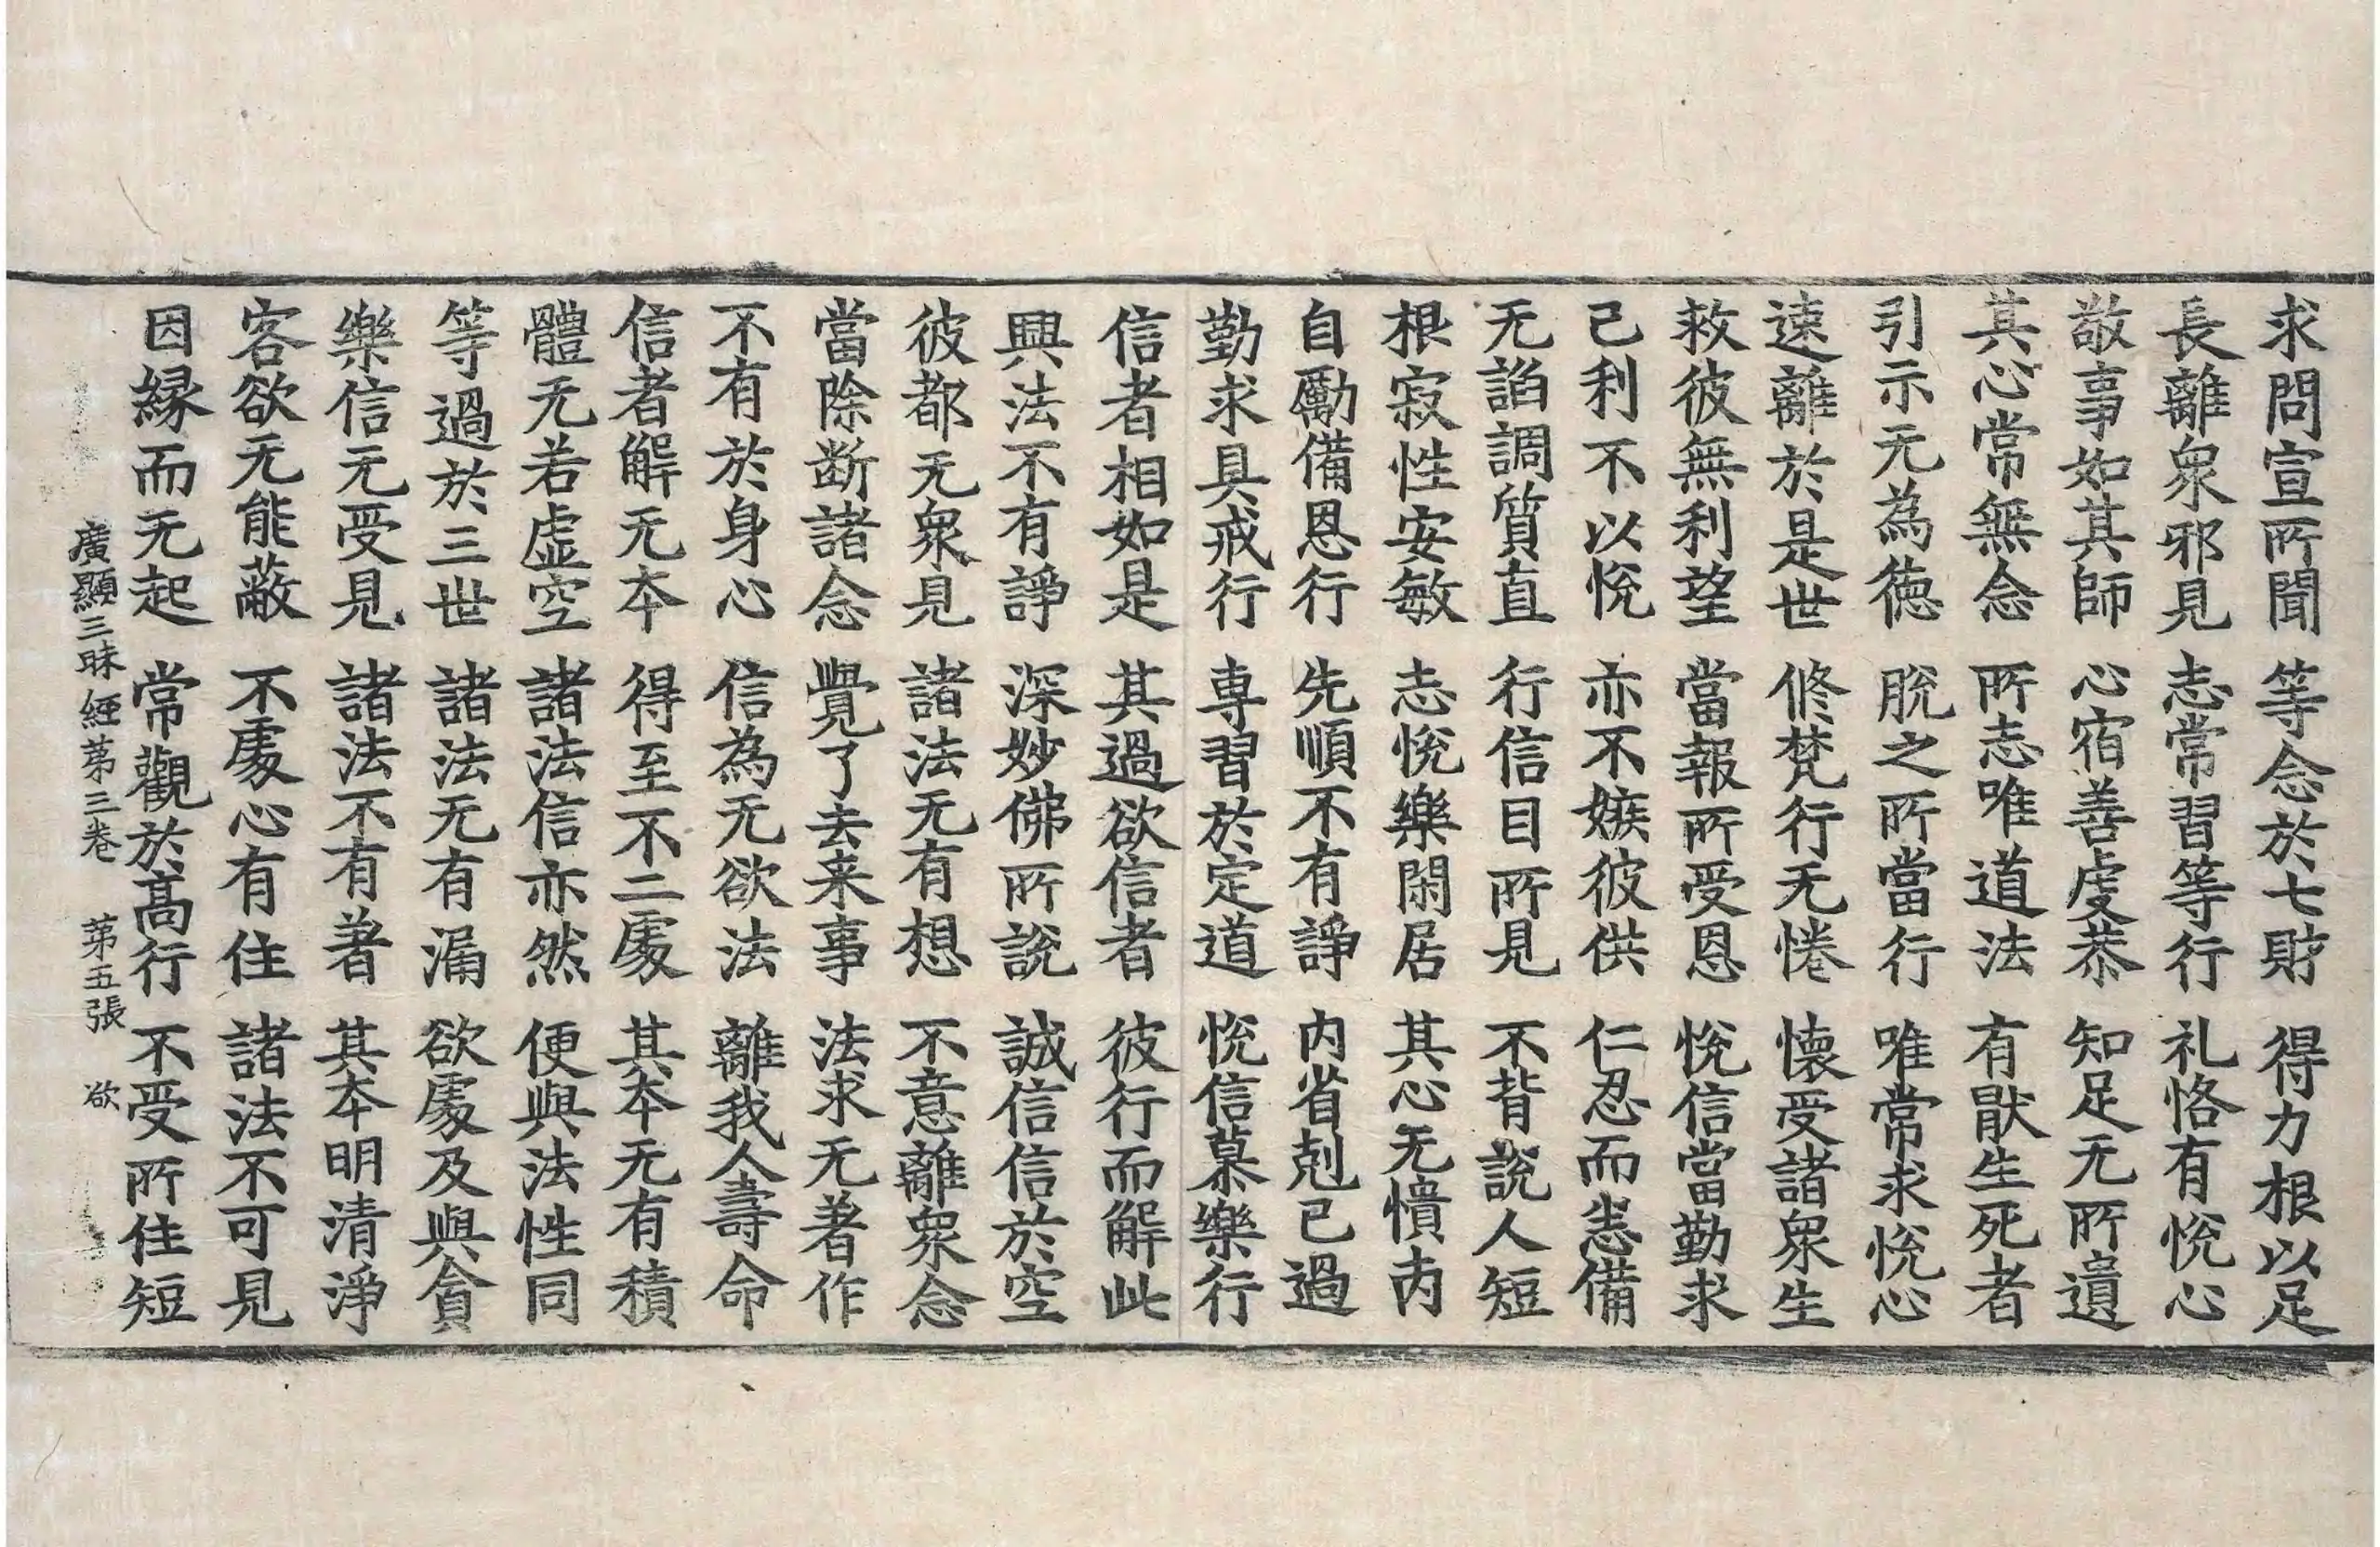 求問宣所聞 等念於七財 得力根以足
長離衆邪見 志常習等行 礼恪有恱心
敬事如其師 心宿善虔恭 知足无所遺
其心常無念 所志唯道法 有猒生死者
引示元為徳 脱之所當行 唯常求恱心
速離於是世 修梵行无惓 懐受諸衆生
救彼無利望 當報所受恩 恱信當勤求
己利不以恱 亦不嫉彼供 仁忍而恚備
无諂調質直 行信目所見 不背説人短
根寂性安敏 志恱樂閑居 其心无憒内
自勵備恩行 先順不有諍 内省剋已過
勤求具戒行 専習於定道 恱信慕樂行
信者相如是 其過欲信者 彼行而解此
興法不有諍 深妙佛所説 誠信信於空
彼都无衆見 諸法无有想 不意離衆念
當除断諸念 覺了去来事 法求无著作
不有於身心 信為无欲法 離我人壽命
信者解无本 得至不二處 其本无有積
體无若虚空 諸法信亦然 便與法性同
等過於三世 諸法无有漏 欲處及與貪
樂信元受見 諸法不有著 其本明清淨
客欲无能蔽 不處心有住 諸法不可見
因縁而无起 常觀於髙行 不受所住短
廣顯三昧經第三巻 第五張 欲